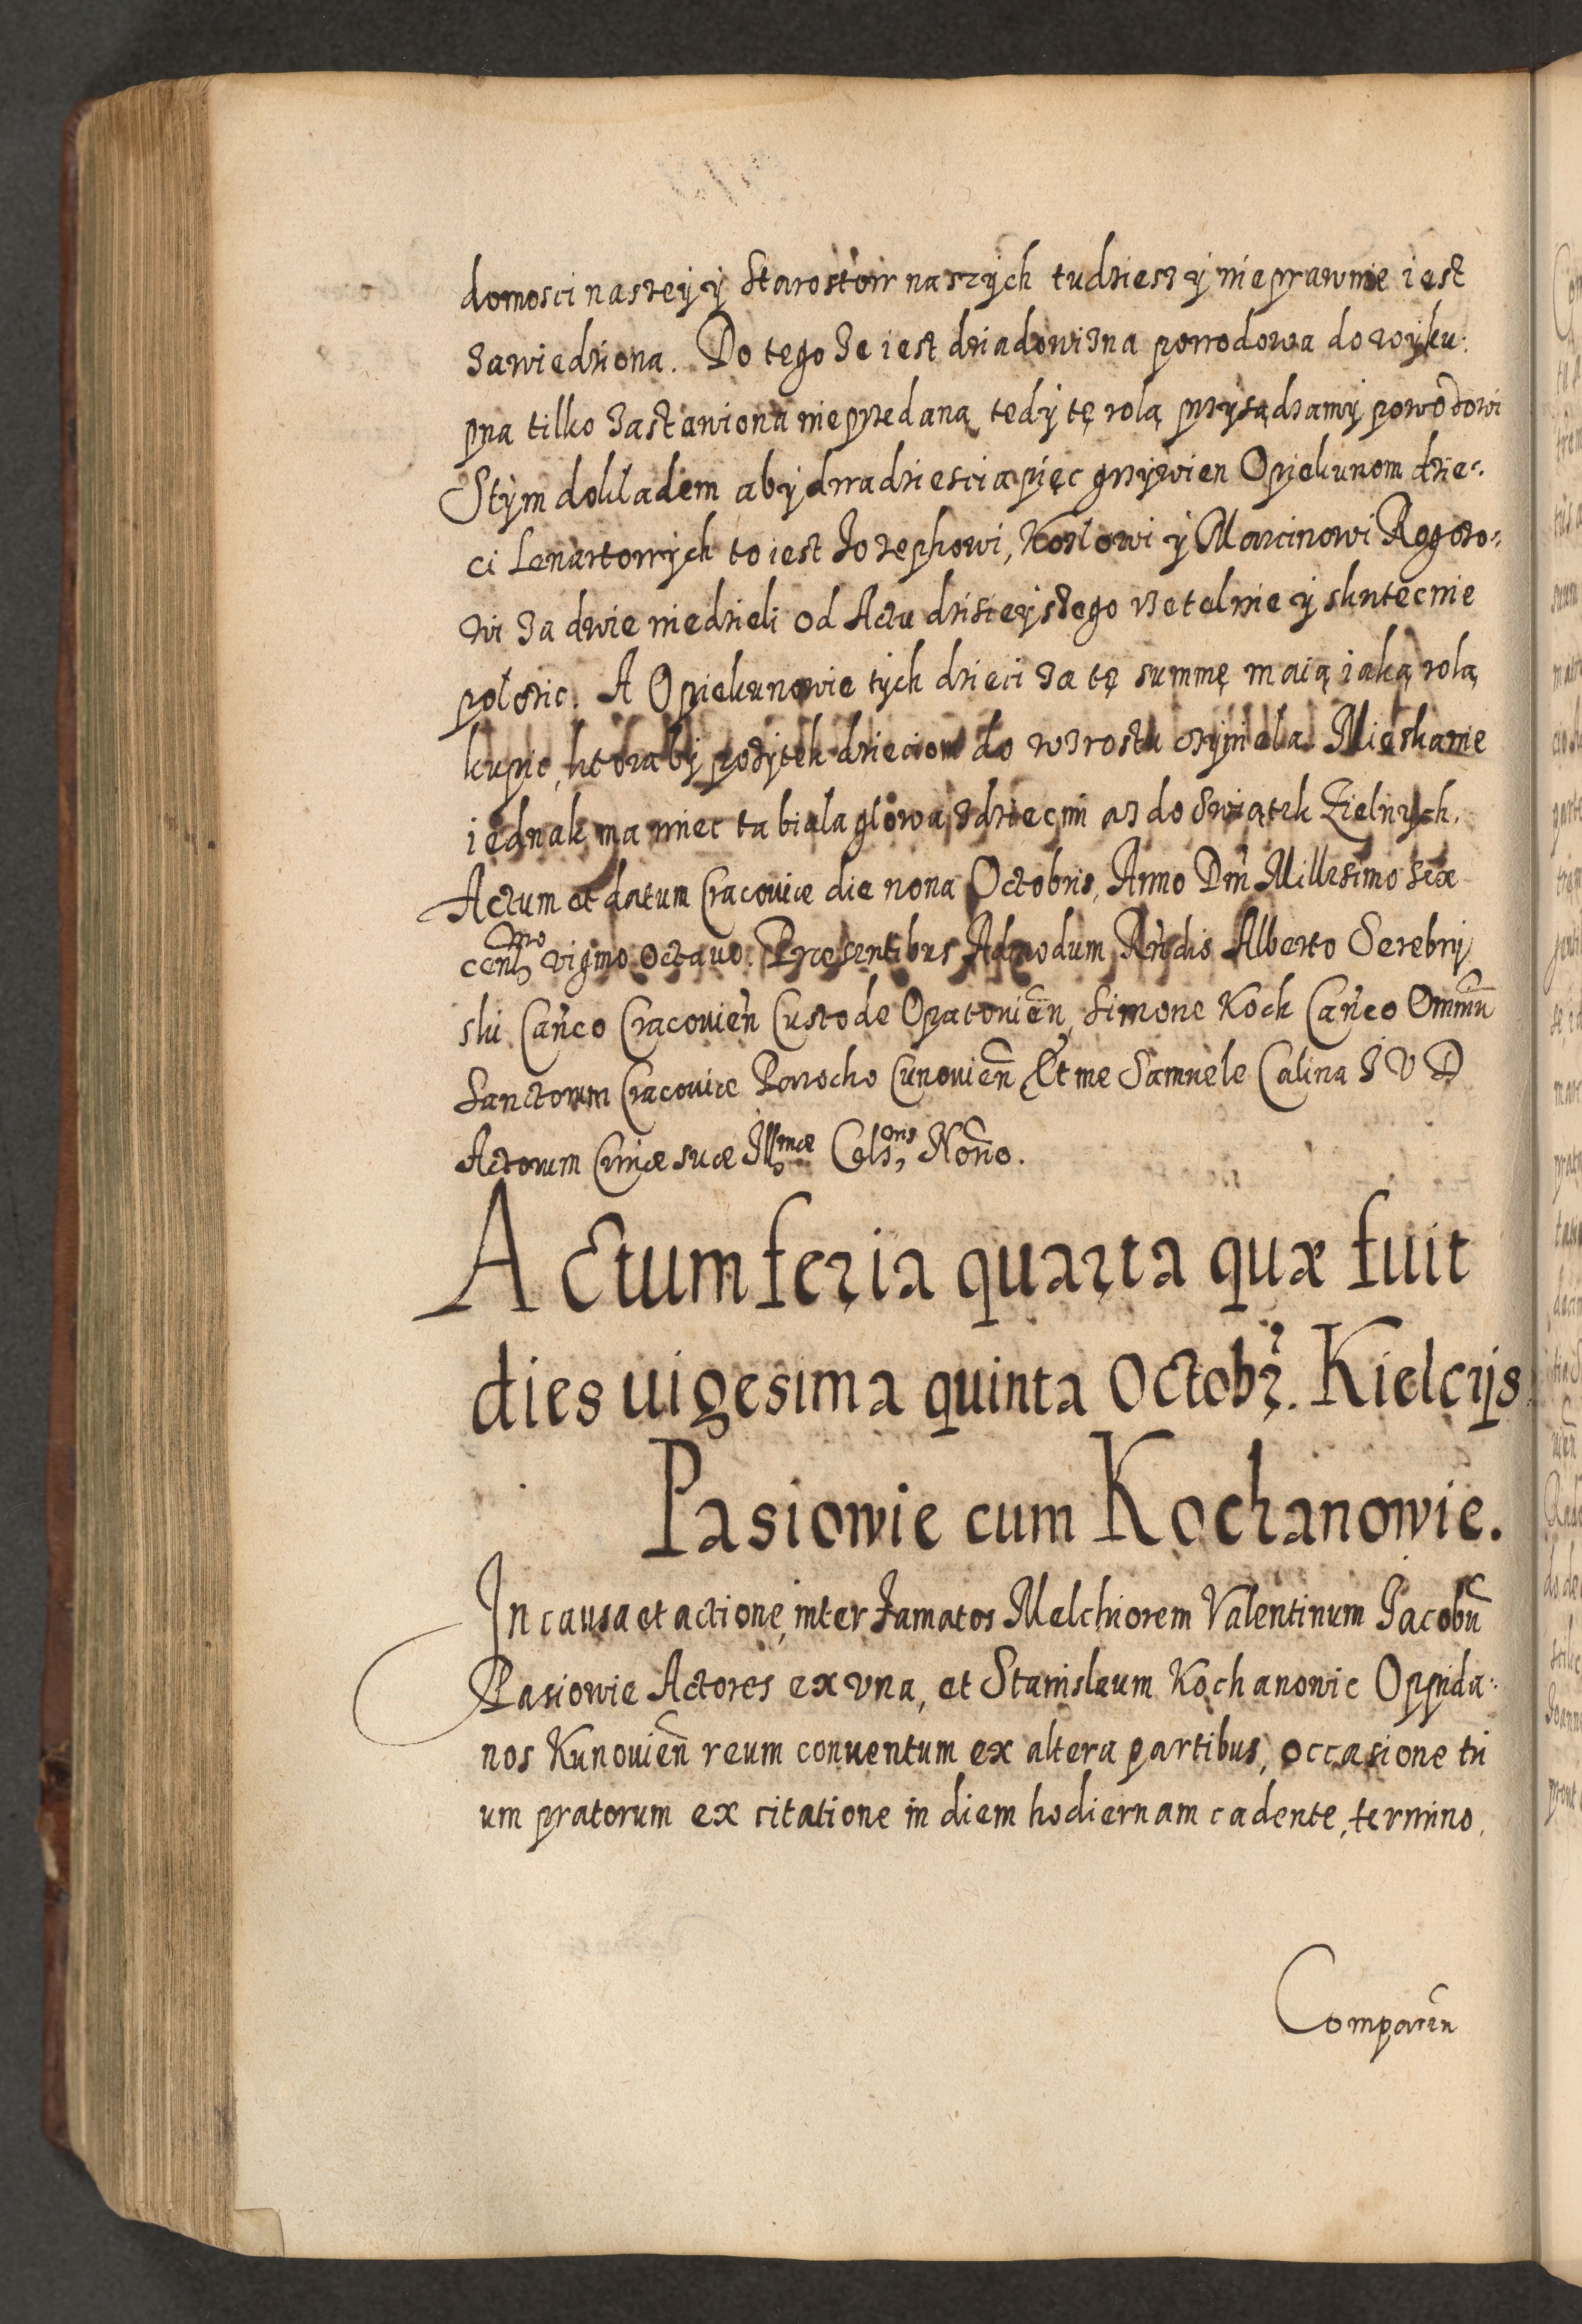 domosci naszey y Starostow naszych tudziesz y nieprawnie iest
zawiedziona. Do tego ze iest dziadowizna powodowa do wyku:
pna tilko zastawiona nieprzedaną tedy tę rolą przysądzamy powodowi
Stym dokladem aby dwadziescia pięc grzywien Opiekunom dzie:
ci Lenartowych to iest Jozephowi, Kozlowi y Marcinowi Rogozo:
wi za dwie niedzieli od Actu dzisieyszego rzetelnie y skutecnie
polozic. A Opiekunowie tych dzieci za tę summę maią iaką rolą
kupic, ktoraby pozytek dzieciom do wzrostu czyniela. Mieskanie
iednak ma miec ta biala glowa z dziecmi az do Swiątek Zielnych.
Actum et datum Cracoviæ die nona Octobris, Anno Dnī Millesimo sex
cenmo vigmo octauo. Præsentibus Admodum Rndis Alberto Serebry
ski Canco Cracouien Custode Opatouien, Simone Koch Canco Omniū
Sanctorum Cracouiæ Parocho Cunouien Et me Samuele Calina J V D
Actorum Curiæ suæ Illmæ Celsnis Notrio.
Actum feria quarta quæ fuit
dies uigesima quinta Octobr. Kielcijs
Pasiowie cum Kochanowie.
In causa et actione inter famatos Melchiorem Valentinum Jacobū
Pasiowie Actores ex vna, et Stanislaum Kochanowic Oppida:
nos Kunouien reum conuentum ex altera partibus, occasione tri
um pratorum ex citatione in diem hodiernam cadente, termino.
Comparen